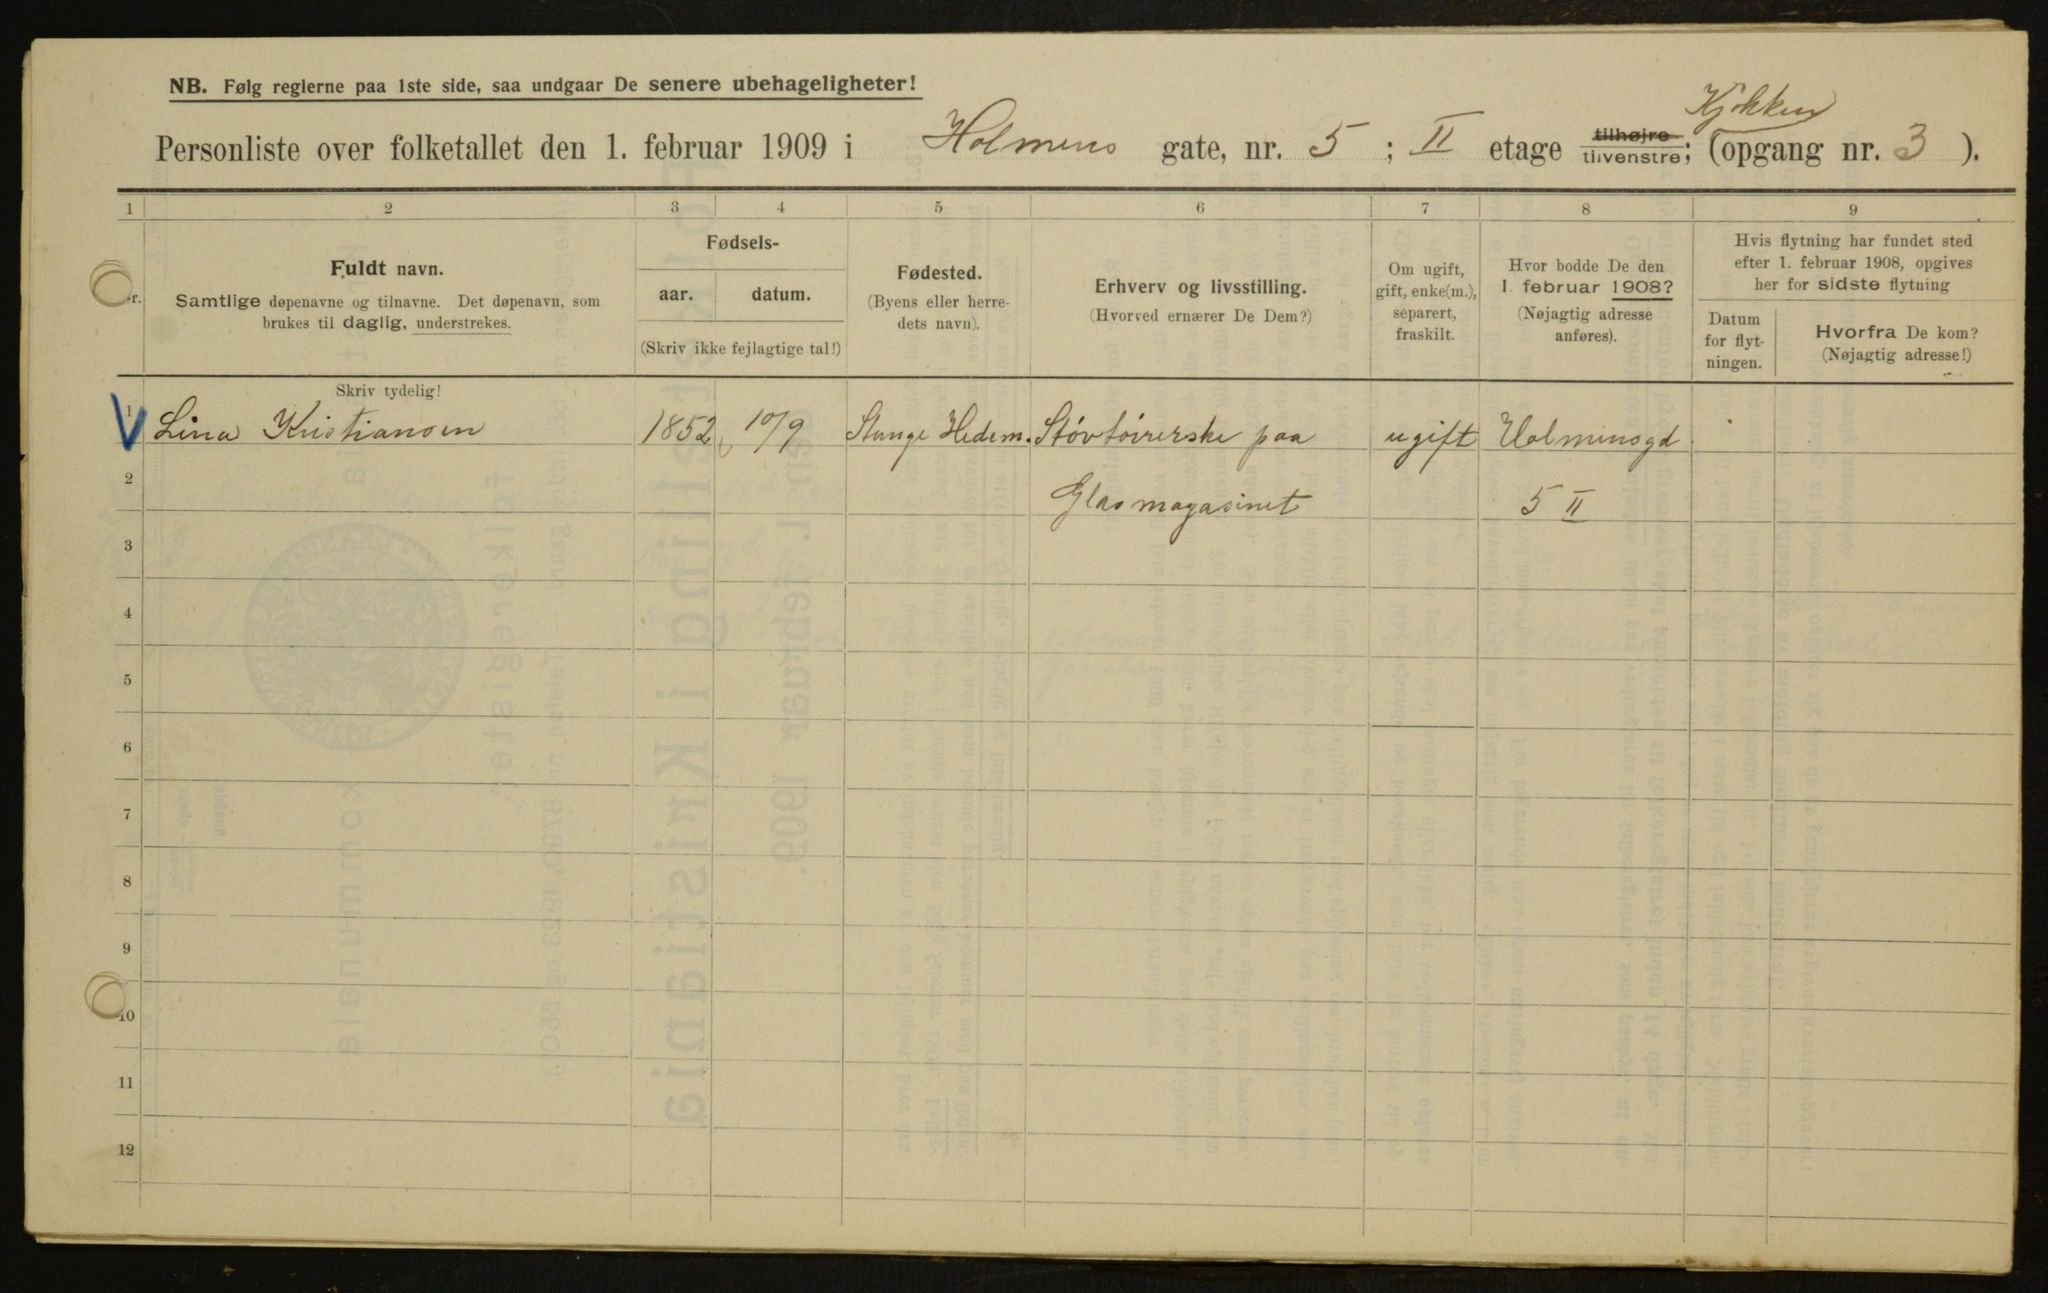 NB. Følg reglerne paa 1ste side, saa undgaar De senere ubehageligheter!
Kjøkken
Personliste over folketallet den 1. februar 1909 i Holmens gate, nr. 5 ; II etage tilhøjre tilvenstre; (opgang nr. 3 ).
1 2 3 4 5 6 7 8 9
Fuldt navn.
Samtlige døpenavne og tilnavne. Det døpenavn, som
brukes til daglig, understrekes.
Fødsels-
aar. datum.
(Skriv ikke fejlagtige tal!)
Fødested.
(Byens eller herre-
dets navn).
Erhverv og livsstilling.
(Hvorved ernærer De Dem?)
Om ugift,
gift, enke(m.),
separert,
fraskilt.
Hvor bodde De den
1. februar 1908?
(Nøjagtig adresse
anføres).
Hvis flytning har fundet sted
efter 1. februar 1908, opgives
her for sidste flytning
Datum
for flyt-
ningen.
Hvorfra De kom?
(Nøjagtig adresse!)
Skriv tydelig!
1 Lina Kristiansen 1852 10/9 Stange Hedem. Støvtøirerske paa ugift Holmensgd
2 Glasmagasinet 5 II
3
4
5
6
7
8
9
10
11
12